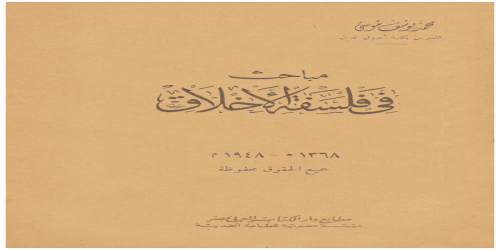 محمد يوسف موسى
المدرس بكلية أصول الدين
مباحث
في فلسفة الأخلاق
١٣٦٨ هـ - ١٩٤٨ م
جميع الحقوق محفوظة
مطابع دار الكتاب العربي بمصر
مؤسسة مصرية للطباعة الحديثة